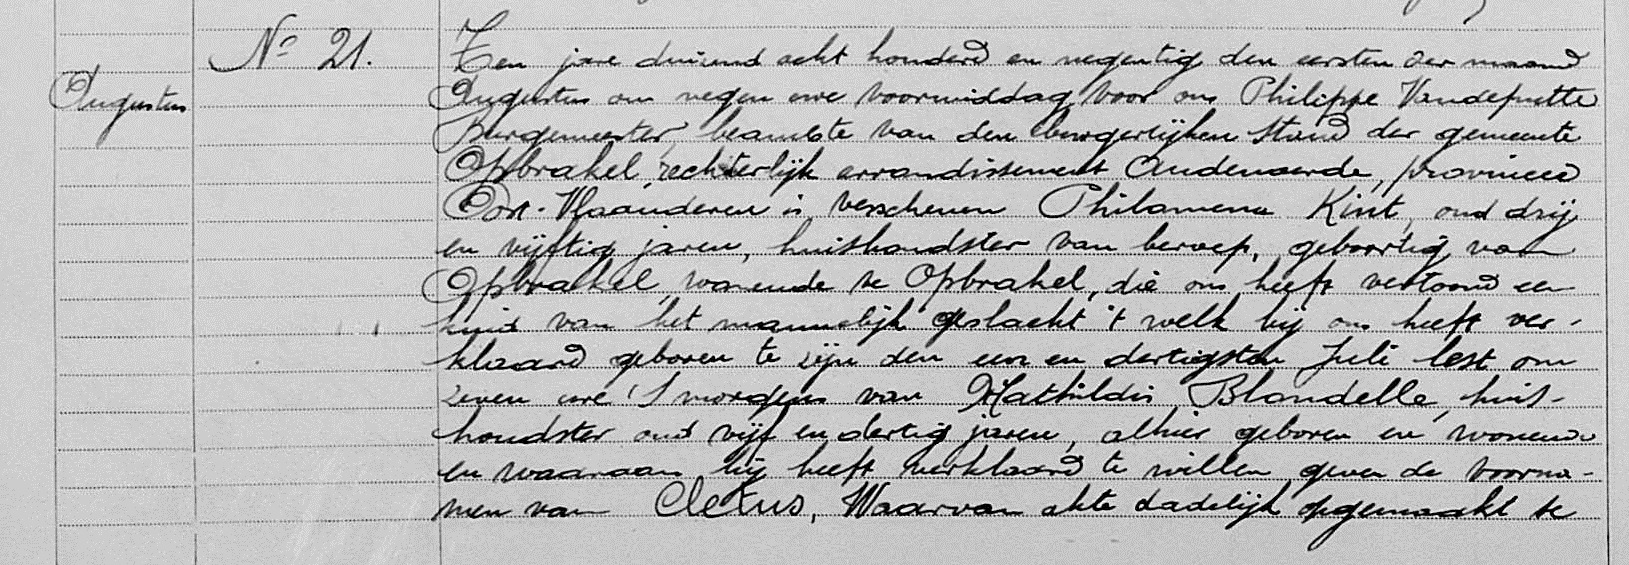 Nº 21.
Augustus
Ten jare duizend acht honderd en negentig den eersten der maand
Augustus om negen ure voormiddag voor ons Philippe Vandeputte
Burgemeester, beambte van den burgerlijken stand der gemeente
Opbrakel, rechterlijk arrondissement Audenaerde, provincie
Oost-Vlaanderen is verschenen Philomena Kint, oud drij
en vijftig jaren, huishoudster van beroep, geboortig van
Opbrakel, wonende te Opbrakel, die ons heeft vertoond een
kind van het mannelijk geslacht 't welk hij ons heeft ver-
klaard geboren te zijn den een en dertigsten Juli lest om
zeven ure 'S morgens van Mathildis Blondelle, huis-
houdster oud vijf en dertig jaren, alhier geboren en wonende
en waaraan hij heeft verklaard te willen geven de voorna-
men van Cletus, Waarvan akte dadelijk opgemaakt te